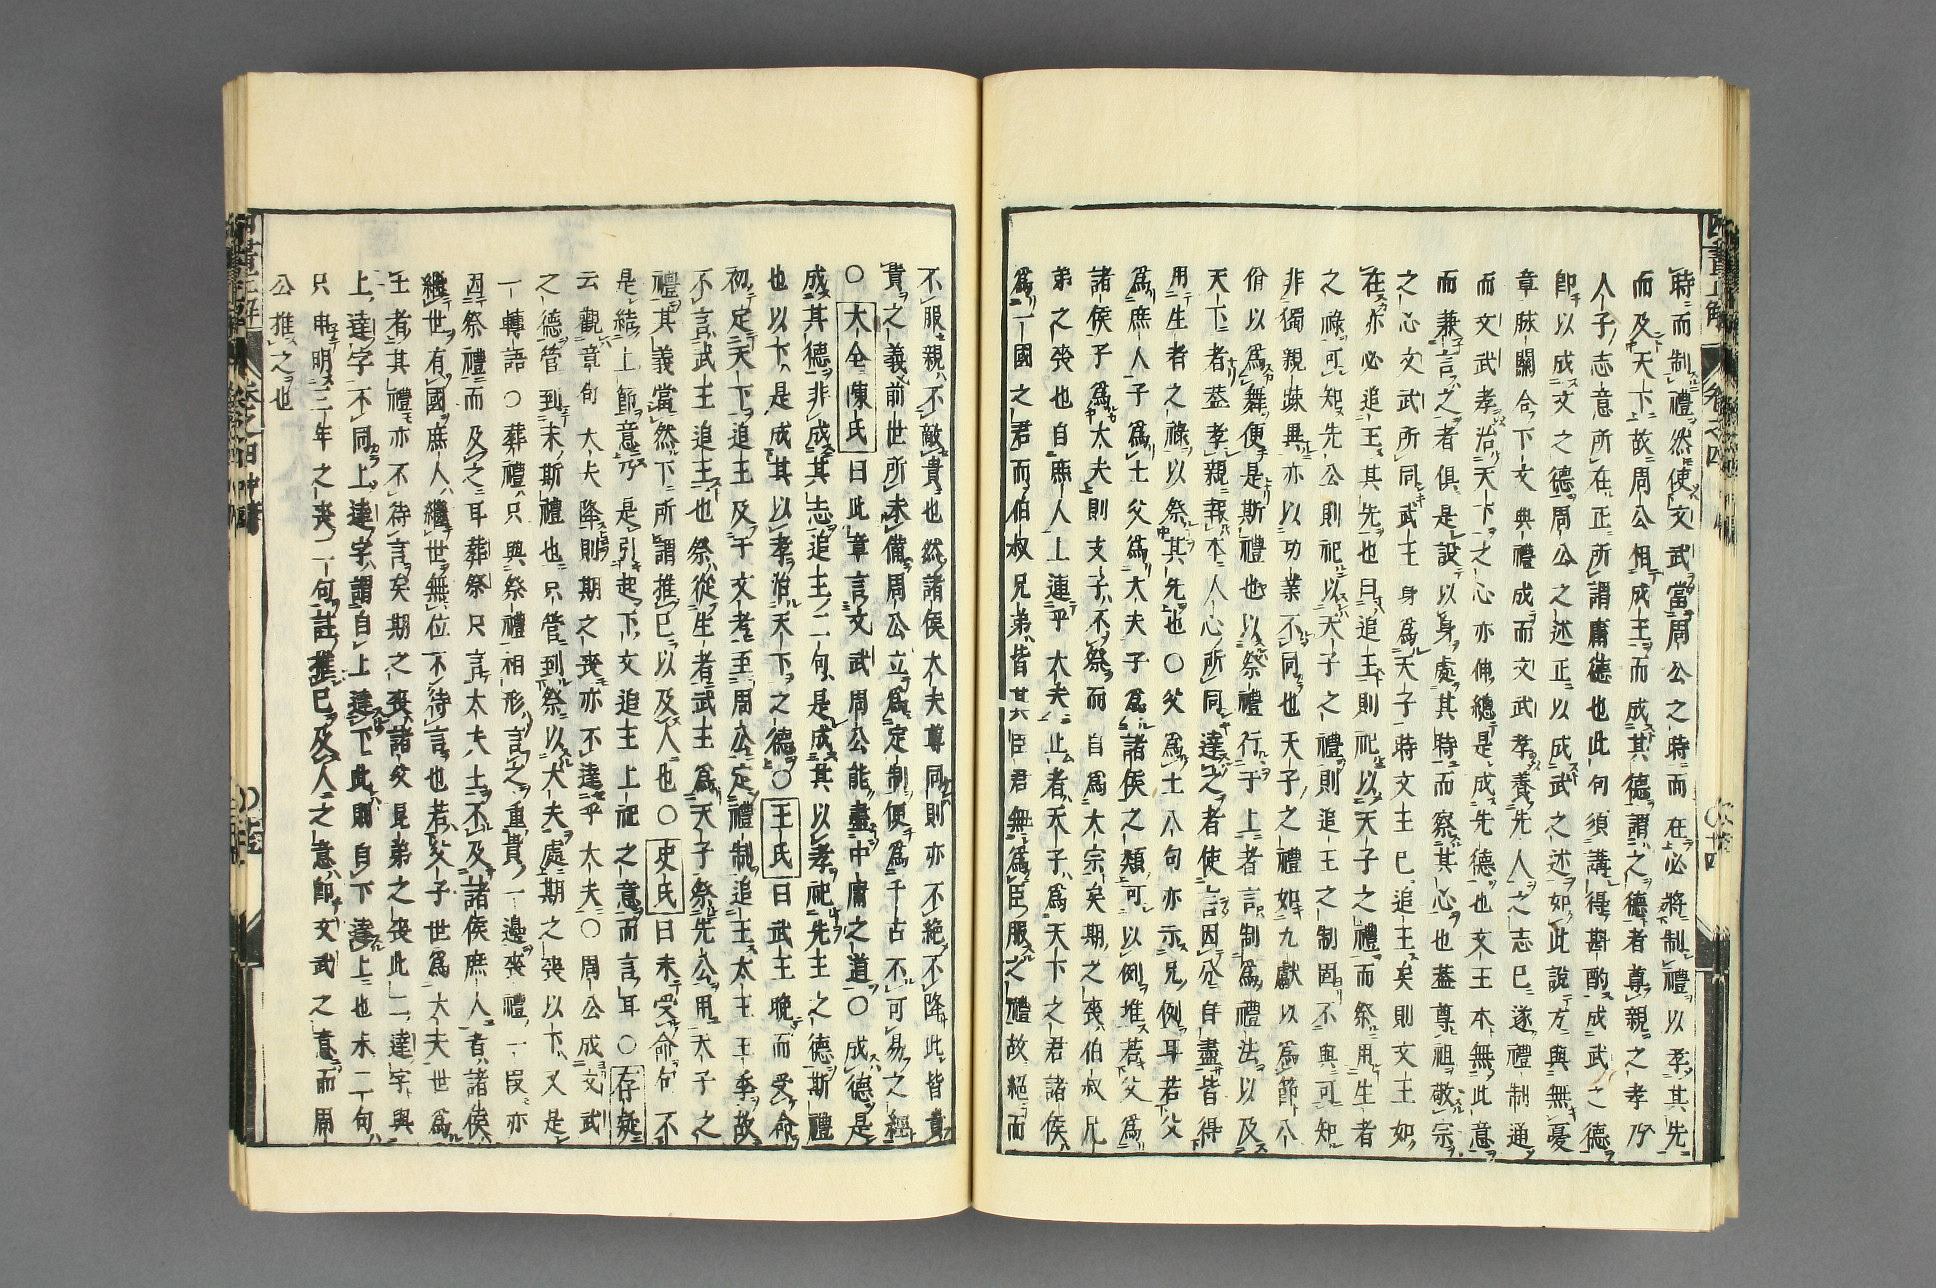 時而制禮然使文武當周公之時而在必將制禮以孝其先
而及天下故周公相成王而成其德謂之德者尊親之孝乃
人子志意所在正所謂庸德也此句須講得斟酌成武之德
即以成文之德周公之述正以成武之述如此說方與無憂
章脉關合下文典禮成而文武孝養先人之志已遂禮制通
而文武孝治天下之心亦伸總是成先德也文王本無此意
而兼言之者俱是設以身處其時而察其心也蓋尊祖敬宗
之心文武所同武王身爲天子時文王已追王矣則文王如
在亦必追王其先也曰追王則祀以天子之禮而祭用生者
之祿可知先公則祀以天子之禮則追王之制固不與可知
非獨親疎異亦以功業不同也天子之禮如九獻以爲節八
佾以爲舞便是斯禮也以祭禮行于上者言制爲禮法以及
天下者蓋孝親報本人心所同達之者使言因分自盡皆得
用生者之祿以祭其先也○父爲士八句亦示兄例耳若父
爲庶人子爲士父爲大夫子爲諸侯之類可以例堆若父爲
諸侯子爲大夫則支子不祭而自爲大宗矣期之喪伯叔兄
弟之喪也自庶人上達乎大夫止者天子爲天下之君諸侯
爲一國之君而伯叔兄弟皆其臣君無爲臣服之禮故絕而
不服親不敵貴也然諸侯大夫尊同則亦不絕不降此皆貴
貴之義前世所未備周公立爲定制便爲千古不可易之經
○大全陳氏曰此章言文武周公能盡中庸之道○成德是
成其德非成其志追王二句是成其以孝祀先王之德斯禮
也以下是成其以孝治天下之德○王氏曰武王晚而受命
初定天下追王及于文考至周公定禮制追王太王王季故
不言武王追王也祭從生者武王爲天子祭先公用天子之
禮其義當然下所謂推已以及人也○史氏曰未受命句不
是結上節意乃是引起下文追王上祀之意而言耳○存疑
云觀章句大夫降則期之喪亦不達乎大夫○周公成文武
之德管到末斯禮也只管到祭以大夫處期之喪以下又是
一轉語○葬禮只與祭禮相形言之重貴一邊喪禮一段亦
因祭禮而及之耳葬祭只言大夫士不及諸侯庶人者諸侯
繼世有國庶人繼世無位不待言也若父子世爲大夫世爲
王者其禮亦不待言矣期之喪諸父昆弟之喪此二達字與
上達字不同上達字謂自上達下此則自下達上也末二句
只申明三年之喪二句註推已及人之意即文武之意而周
公推之也